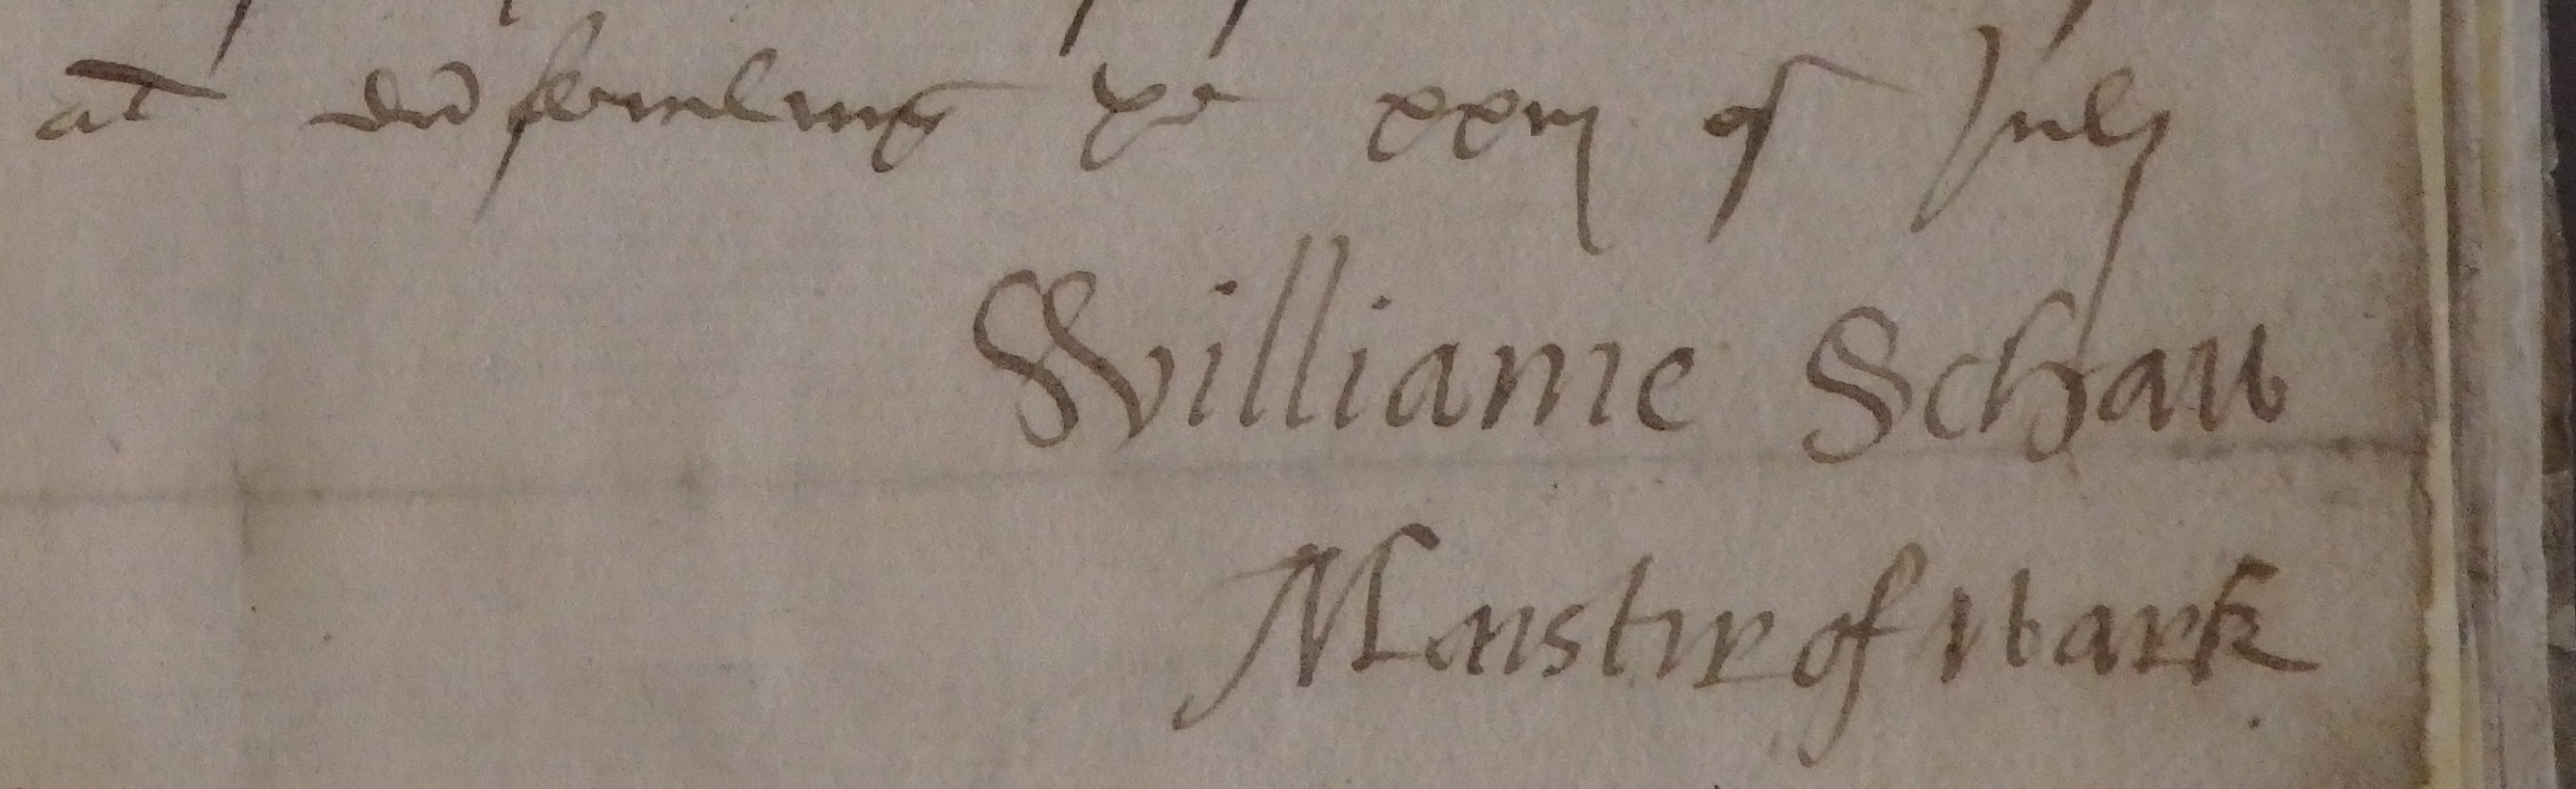 at dūfermling ye xxiij of July
Williame Schaw
Maistir of wark